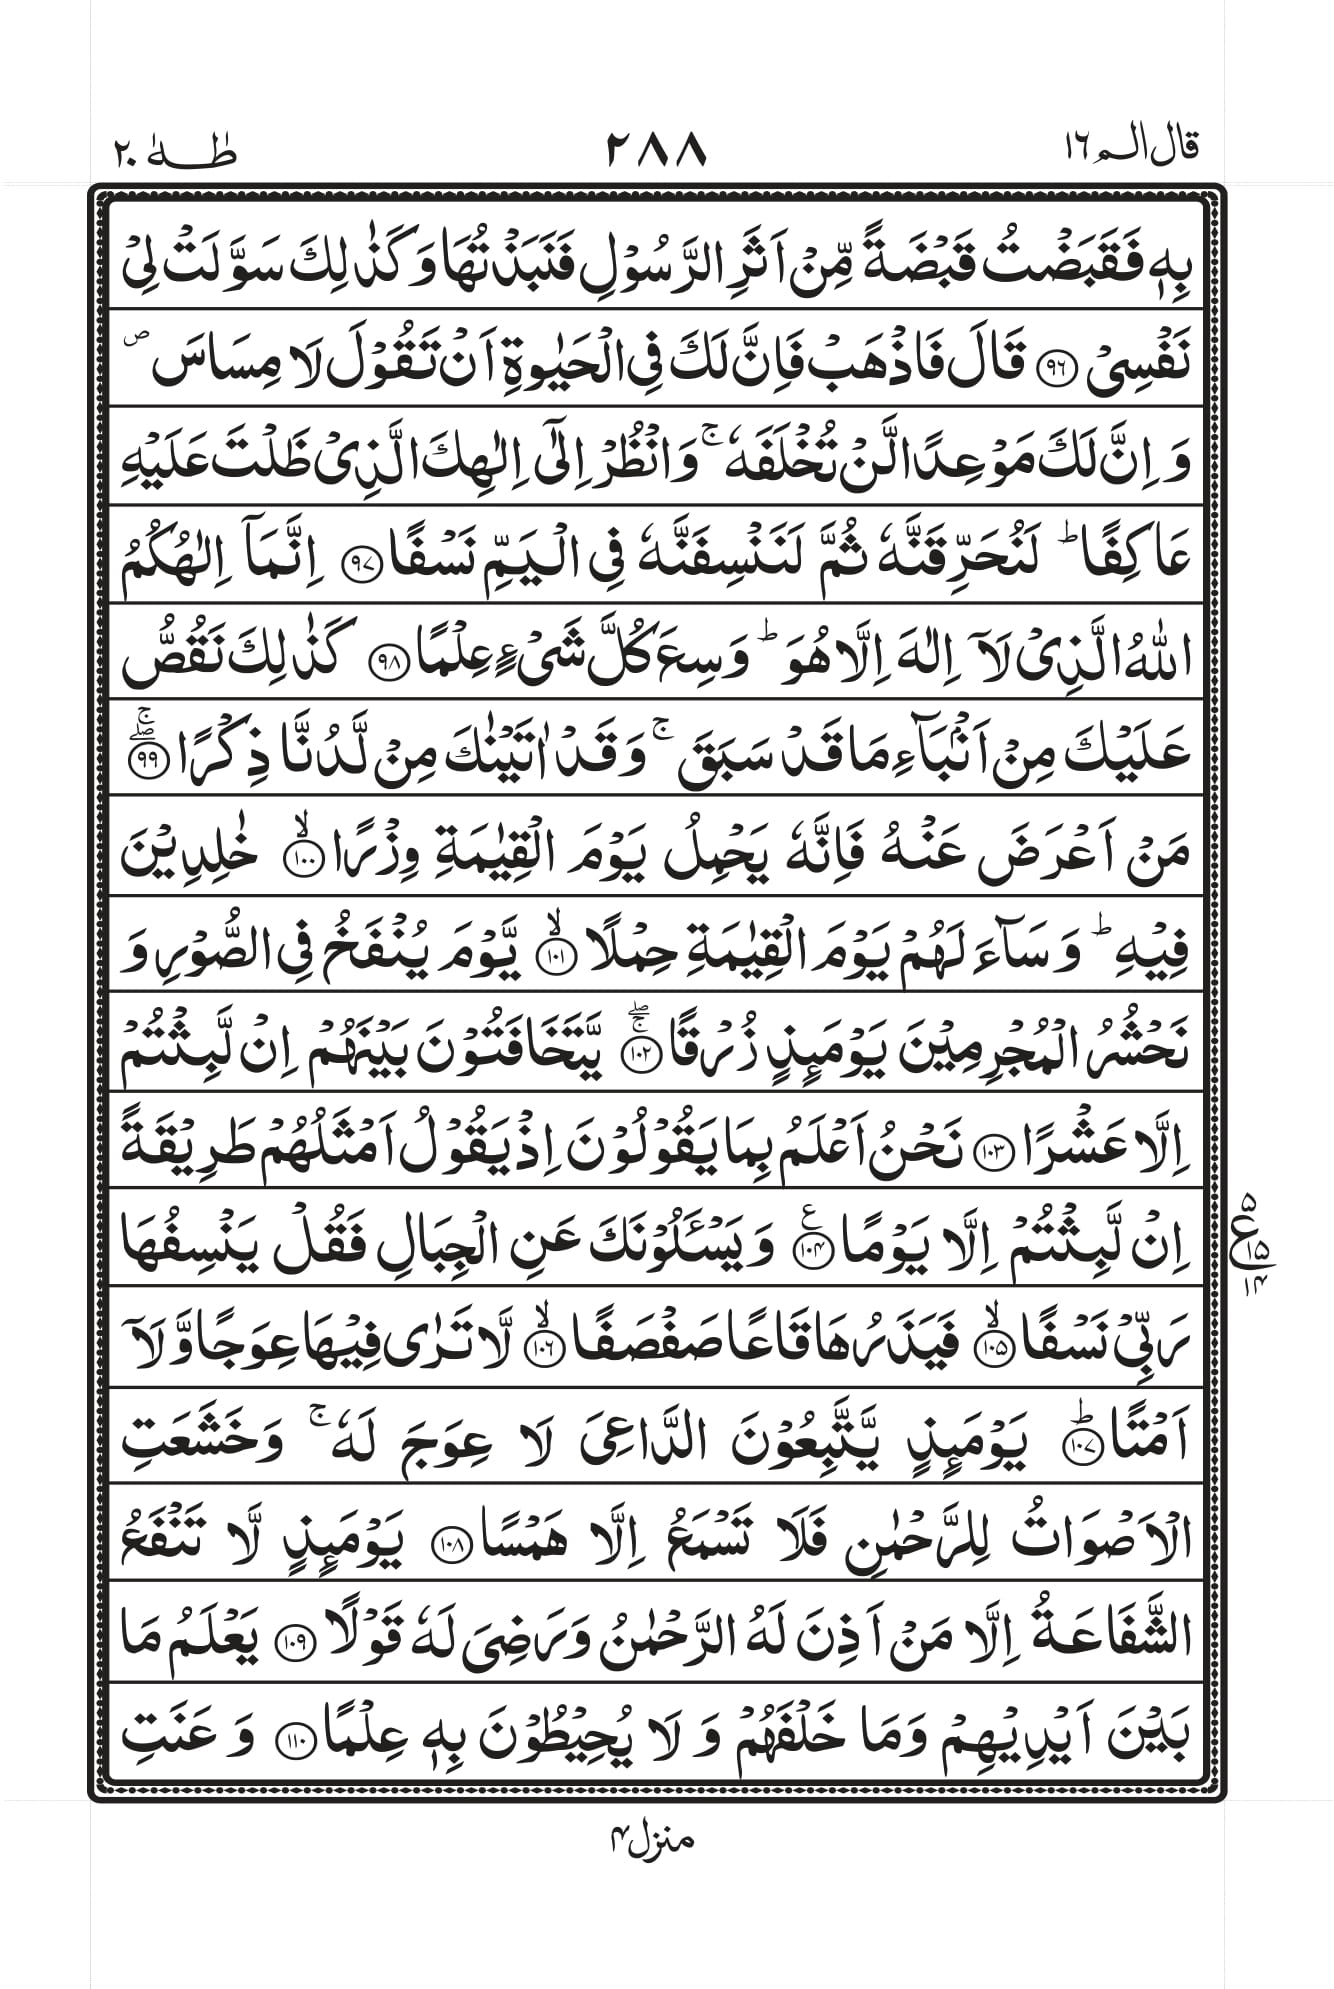 قال الم ١٦
٢٨٨
طٰهٰ ٢٠
بِهٖ فَقَبَضْتُ قَبْضَةً مِّنْ اَثَرِ الرَّسُوْلِ فَنَبَذْتُهَا وَكَذٰلِكَ سَوَّلَتْ لِيْ
نَفْسِيْ ﴿۹۶﴾ قَالَ فَاذْهَبْ فَاِنَّ لَكَ فِي الْحَيٰوةِ اَنْ تَقُوْلَ لَا مِسَاسَ ۪
وَ اِنَّ لَكَ مَوْعِدًا لَّنْ تُخْلَفَهٗ ۚ وَانْظُرْ اِلٰٓى اِلٰهِكَ الَّذِيْ ظَلْتَ عَلَيْهِ
عَاكِفًا ؕ لَنُحَرِّقَنَّهٗ ثُمَّ لَنَنْسِفَنَّهٗ فِي الْيَمِّ نَسْفًا ﴿۹۷﴾ اِنَّمَآ اِلٰهُكُمُ
اللّٰهُ الَّذِيْ لَآ اِلٰهَ اِلَّا هُوَ ؕ وَسِعَ كُلَّ شَيْءٍ عِلْمًا ﴿۹۸﴾ كَذٰلِكَ نَقُصُّ
عَلَيْكَ مِنْ اَنْۢبَآءِ مَا قَدْ سَبَقَ ۚ وَقَدْ اٰتَيْنٰكَ مِنْ لَّدُنَّا ذِكْرًا ﴿۹۹﴾ ۖۚ
مَنْ اَعْرَضَ عَنْهُ فَاِنَّهٗ يَحْمِلُ يَوْمَ الْقِيٰمَةِ وِزْرًا ﴿۱۰۰﴾ ۙ خٰلِدِيْنَ
فِيْهِ ؕ وَسَآءَ لَهُمْ يَوْمَ الْقِيٰمَةِ حِمْلًا ﴿۱۰۱﴾ ۙ يَّوْمَ يُنْفَخُ فِي الصُّوْرِ وَ
نَحْشُرُ الْمُجْرِمِيْنَ يَوْمَئِذٍ زُرْقًا ﴿۱۰۲﴾ ۖۚ يَّتَخَافَتُوْنَ بَيْنَهُمْ اِنْ لَّبِثْتُمْ
اِلَّا عَشْرًا ﴿۱۰۳﴾ نَحْنُ اَعْلَمُ بِمَا يَقُوْلُوْنَ اِذْ يَقُوْلُ اَمْثَلُهُمْ طَرِيْقَةً
اِنْ لَّبِثْتُمْ اِلَّا يَوْمًا ﴿۱۰۴﴾ ع وَيَسْـَٔلُوْنَكَ عَنِ الْجِبَالِ فَقُلْ يَنْسِفُهَا
۵ ع ۱۵ ۱۴
رَبِّيْ نَسْفًا ﴿۱۰۵﴾ ۙ فَيَذَرُهَا قَاعًا صَفْصَفًا ﴿۱۰۶﴾ ۙ لَّا تَرٰى فِيْهَا عِوَجًا وَّلَآ
اَمْتًا ﴿۱۰۷﴾ ؕ يَوْمَئِذٍ يَّتَّبِعُوْنَ الدَّاعِيَ لَا عِوَجَ لَهٗ ۚ وَخَشَعَتِ
الْاَصْوَاتُ لِلرَّحْمٰنِ فَلَا تَسْمَعُ اِلَّا هَمْسًا ﴿۱۰۸﴾ يَوْمَئِذٍ لَّا تَنْفَعُ
الشَّفَاعَةُ اِلَّا مَنْ اَذِنَ لَهُ الرَّحْمٰنُ وَرَضِيَ لَهٗ قَوْلًا ﴿۱۰۹﴾ يَعْلَمُ مَا
بَيْنَ اَيْدِيْهِمْ وَمَا خَلْفَهُمْ وَ لَا يُحِيْطُوْنَ بِهٖ عِلْمًا ﴿۱۱۰﴾ وَ عَنَتِ
منزل ۴